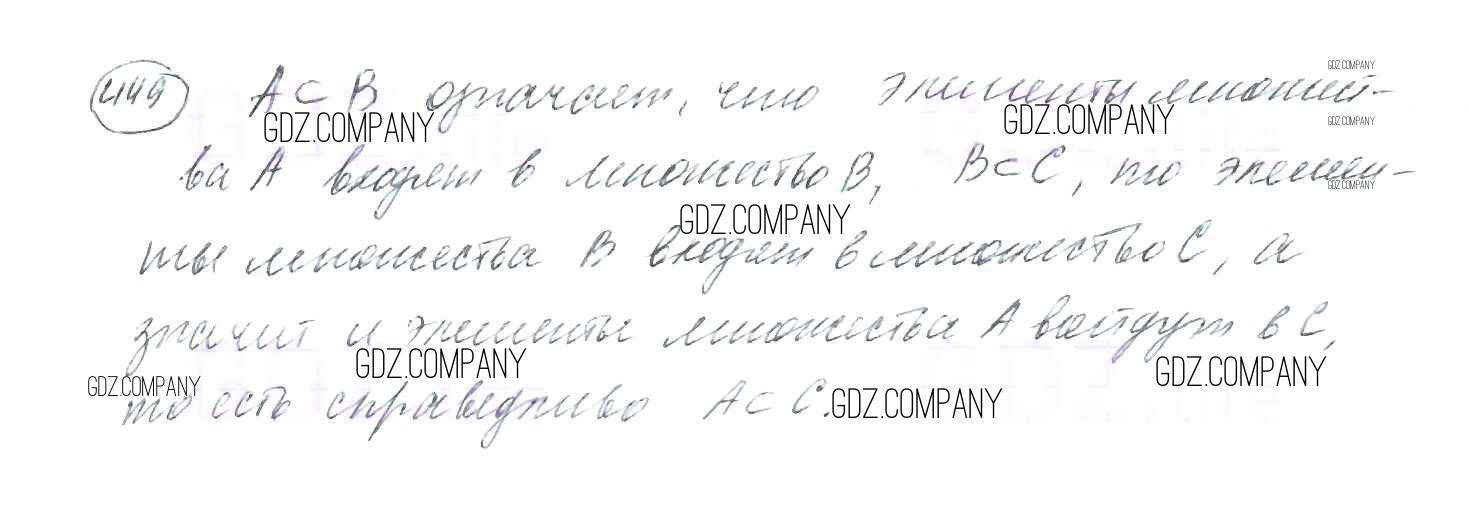 449 A ⊂ B означает, что элементы множест-
GDZ.COMPANY
GDZ.COMPANY GDZ.COMPANY
GDZ.COMPANY
ва A входят в множество B, B ⊂ C, то элемен-
GDZ.COMPANY
GDZ.COMPANY
ты множества B входят в множество C, а
значит и элементы множества A войдут в C,
GDZ.COMPANY GDZ.COMPANY
GDZ.COMPANY
то есть справедливо A ⊂ C.
GDZ.COMPANY